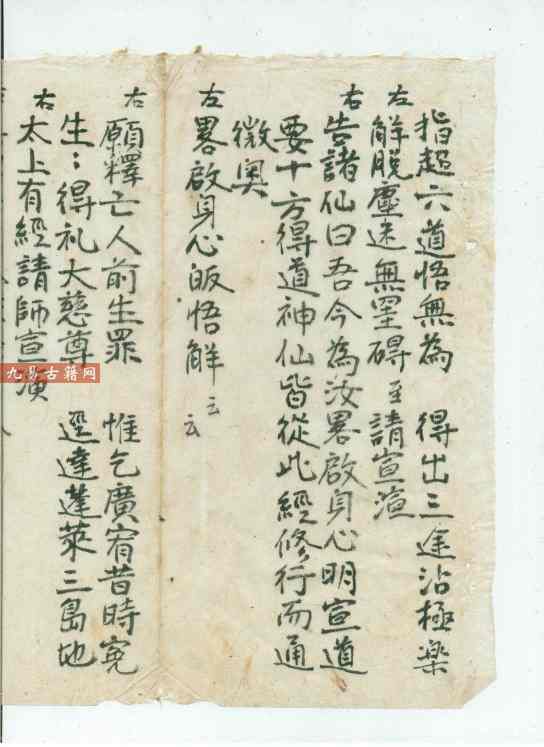 指超六道悟無為　得出三途沾極楽
左　解脱塵迷無罣碍　至請宣演
右　告諸仙曰吾今為汝畧啟身心明宣道
要十方得道神仙皆從此經修行而通
微奥
左　畧啟身心皈悟解　云云
右　願釋亡人前生罪　惟乞廣宥昔時冤
生〻得礼大慈尊　逕達蓬萊三島地
右　太上有經請師宣演
九易古籍网